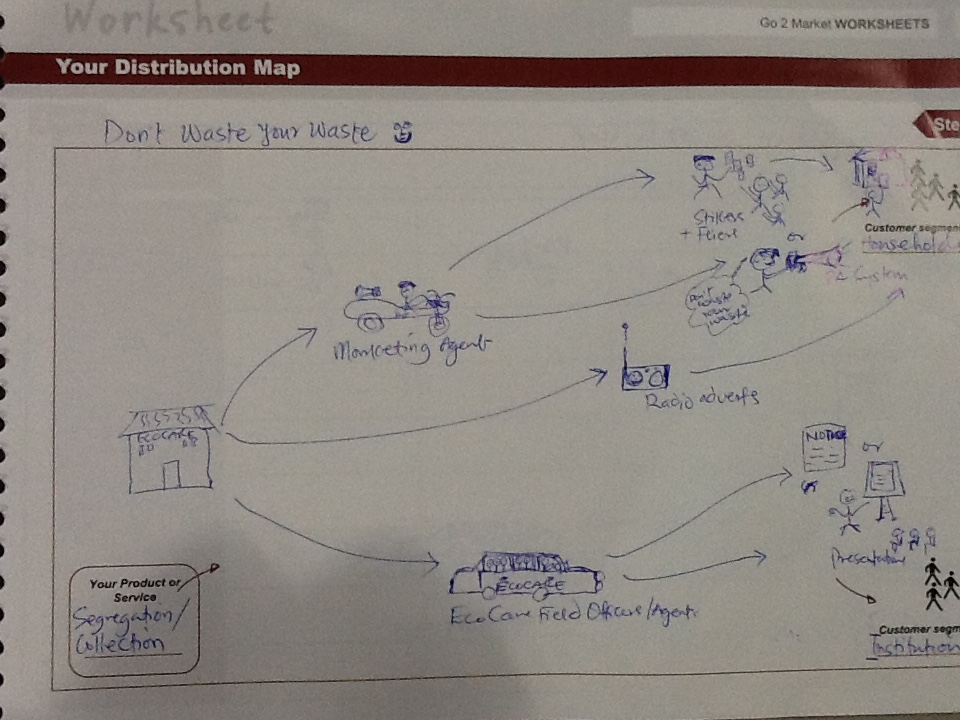 Worksheet
Go 2 Market WORKSHEETS
Your Distribution Map
Ste
Don't Waste Your Waste
Stikers
+ Fliers
or
Customer segmen
Households
PA System
Don't
waste
your
waste
Marketing Agent
Radio adverts
ECOCARE
NOTICE
or
Presentation
ECOCARE
EcoCare Field Officers/Agents
Your Product or
Service
Segregation/
Collection
Customer segm
Institution